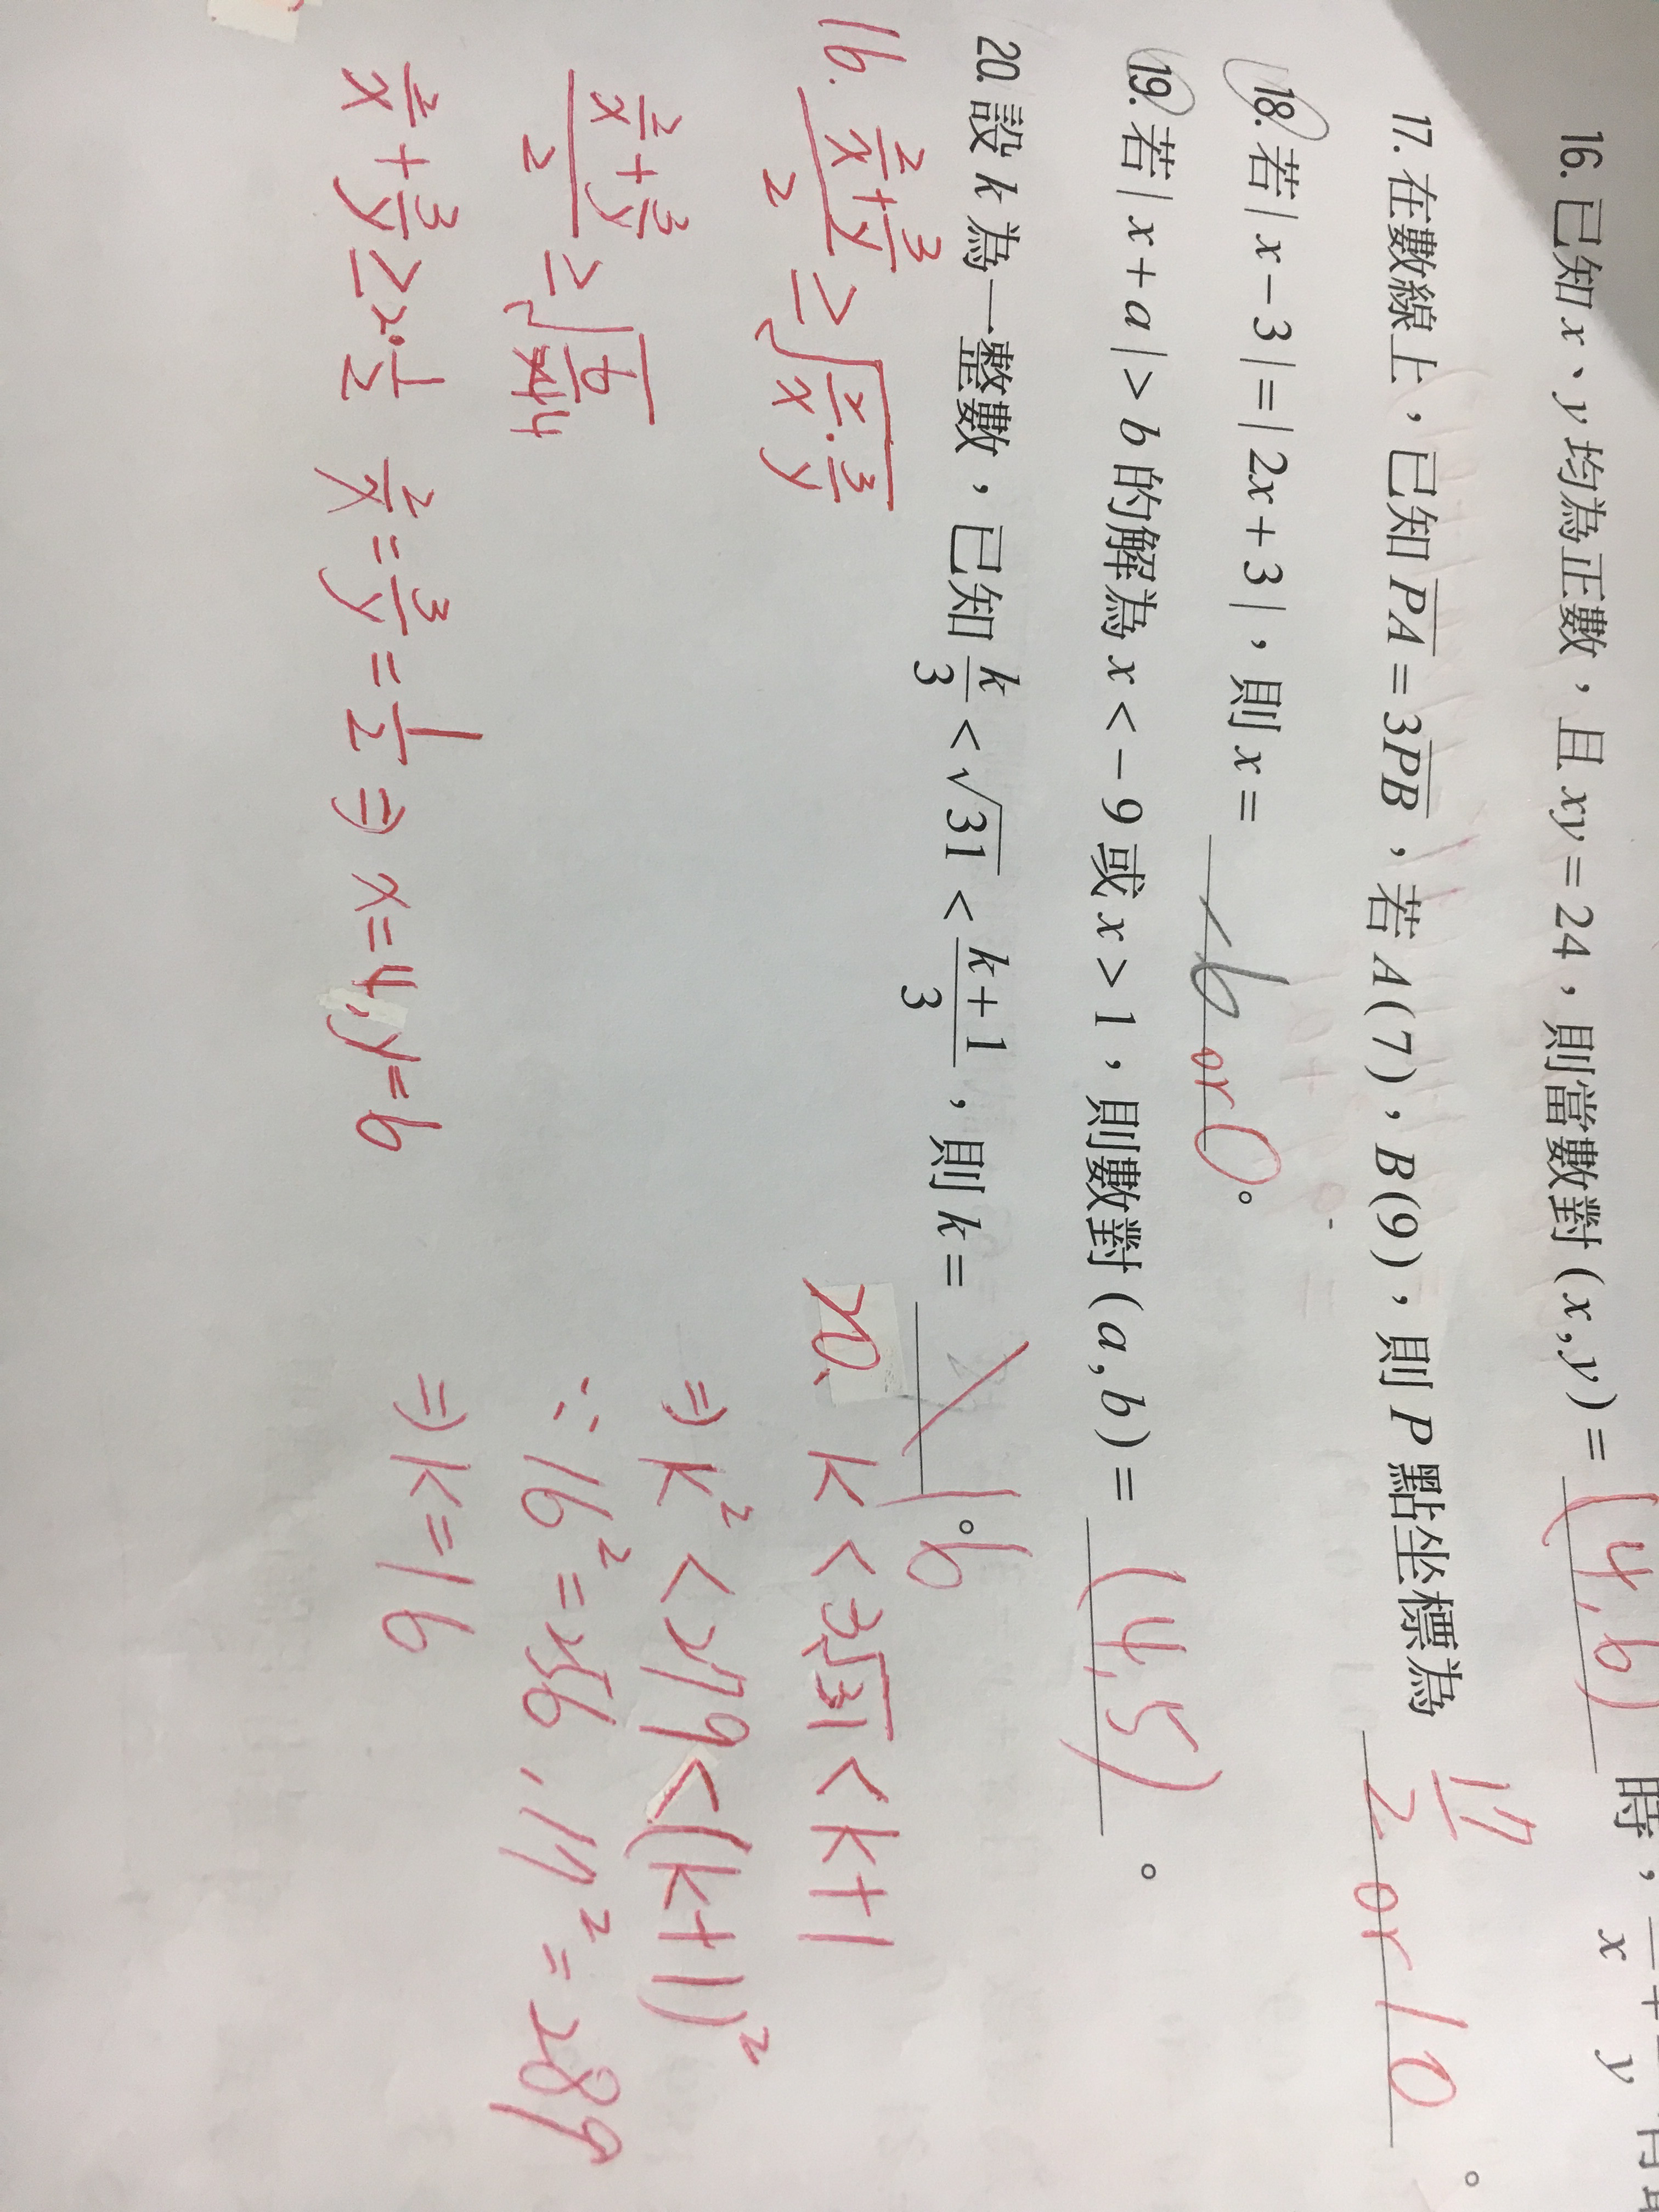 16. 已知 x、y 均為正數，且 xy = 24，則當數對 (x, y) = (4, 6) 時，
x y
17. 在數線上，已知 PA = 3PB，若 A(7)，B(9)，則 P 點坐標為 17/2 or 10。
18. 若 | x − 3 | = | 2x + 3 |，則 x = -6 or 0。
19. 若 | x + a | > b 的解為 x < − 9 或 x > 1，則數對 (a, b) = (4, 5)。
20. 設 k 為一整數，已知 k/3 < √31 < (k+1)/3，則 k = 16。
16. (2/x + 3/y)/2 ≥ √(2/x · 3/y)
(2/x + 3/y)/2 ≥ √(6/24)
2/x + 3/y ≥ 2 · 1/2
2/x = 3/y = 1/2 ⇒ x = 4, y = 6
20. k < 3√31 < k + 1
⇒ k² < 279 < (k+1)²
∵ 16² = 256, 17² = 289
⇒ k = 16